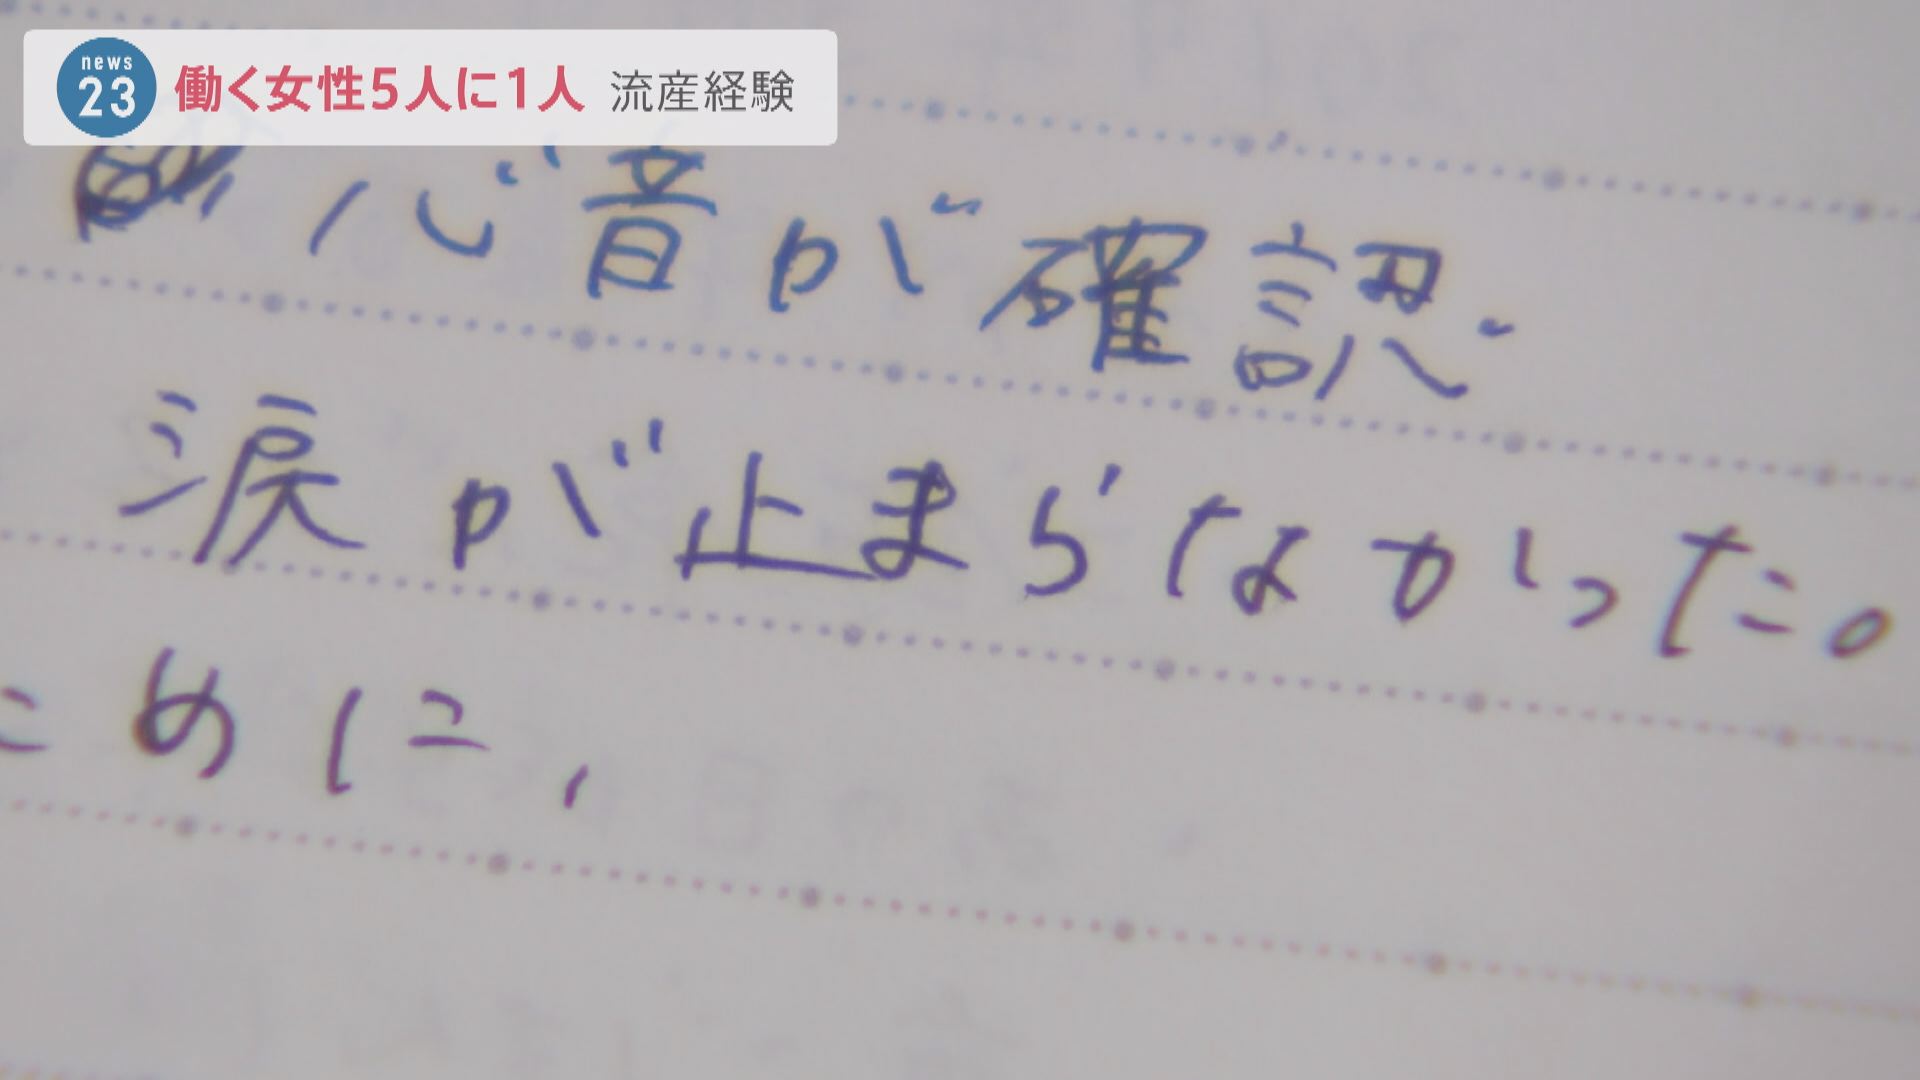 news
23
働く女性5人に1人 流産経験
心音が確認.
涙が止まらなかった。
ために,